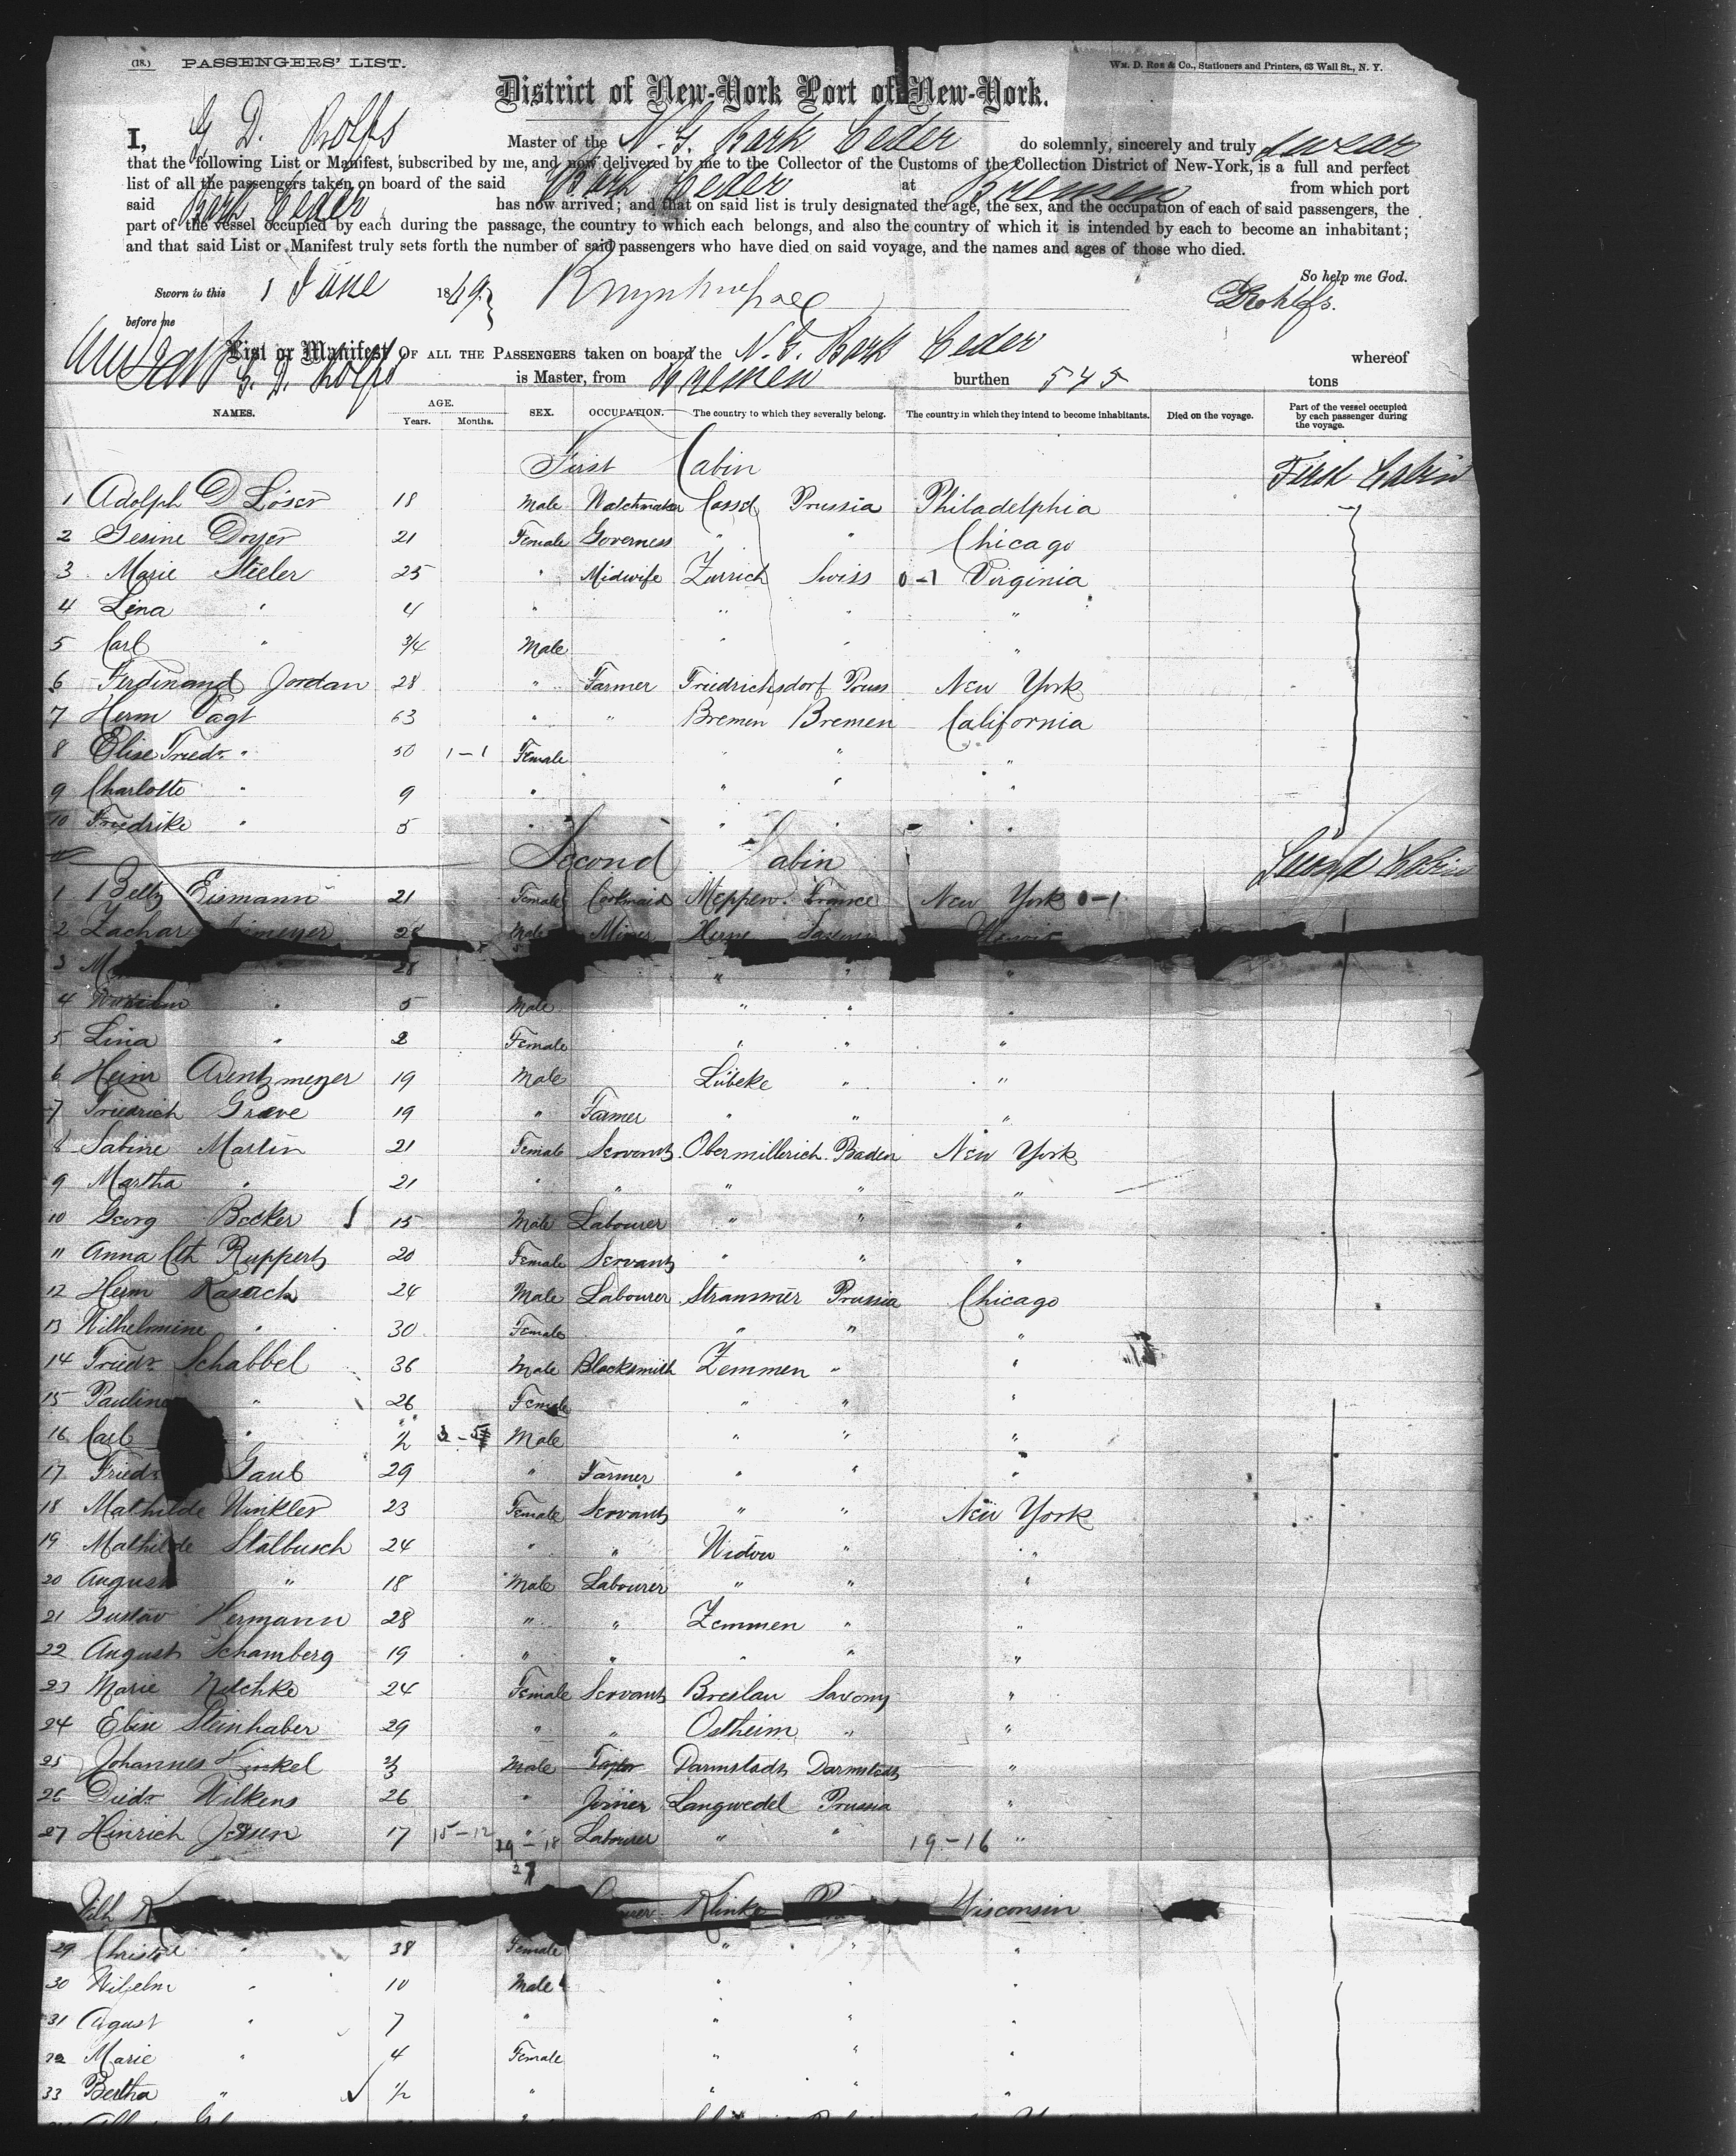 (18.) PASSENGERS' LIST. Wm. D. Roe & Co., Stationers and Printers, 63 Wall St., N. Y.
District of New-York Port of New-York.
I, G. D. Rolfs Master of the N. G. Bark Ceder do solemnly, sincerely and truly swear
that the following List or Manifest, subscribed by me, and now delivered by me to the Collector of the Customs of the Collection District of New-York, is a full and perfect
list of all the passengers taken on board of the said Bark Ceder at Bremen from which port
said Bark Ceder has now arrived; and that on said list is truly designated the age, the sex, and the occupation of each of said passengers, the
part of the vessel occupied by each during the passage, the country to which each belongs, and also the country of which it is intended by each to become an inhabitant;
and that said List or Manifest truly sets forth the number of said passengers who have died on said voyage, and the names and ages of those who died.
So help me God.
Sworn to this 1 June 1869 Rohlfs.
before me
List or Manifest OF ALL THE PASSENGERS taken on board the N. G. Bark Ceder whereof
G. D. Rolfs is Master, from Bremen burthen 545 tons
NAMES. AGE. Years. Months. SEX. OCCUPATION. The country to which they severally belong. The country in which they intend to become inhabitants. Died on the voyage. Part of the vessel occupied by each passenger during the voyage.
First Cabin First Cabin
1 Adolph D Löser 18 Male Watchmaker Cassel Prussia Philadelphia
2 Gesine Doyer 21 Female Governess " " Chicago
3 Marie Steeler 25 " Midwife Zurrich Swiss 0-1 Virginia
4 Lina " 4 " " " "
5 Carl " 3/4 Male " " "
6 Ferdinand Jordan 28 " Farmer Friedrichsdorf Pruss New York
7 Herm Vagt 63 " " Bremen Bremen California
8 Elise Friedr " 50 1-1 Female " " "
9 Charlotte " 9 " " " "
10 Friedrike " 5 " " " "
Second Cabin Second Cabin
1 Betty Eismann 21 Female Cookmaid Meppen France New York 0-1
2 Zachar 28 Male Miner Herne
3 28 " " "
4 5 Male " " "
5 Lina " 2 Female " " "
6 Heinr Arentzmeyer 19 Male Lübeke " "
7 Friedrich Graeve 19 " Farmer " " "
8 Sabine Martin 21 Female Servant Obermillerich Baden New York
9 Martha " 21 " " " " "
10 Georg Becker 15 Male Labourer " " "
11 Anna Cth Ruppert 20 Female Servant " " "
12 Herm Kasack 24 Male Labourer Stransmür Prussia Chicago
13 Wilhelmine " 30 Female " " "
14 Friedr Schabbel 36 Male Blacksmith Zemmen " "
15 Pauline " 26 Female " " "
16 Carl " 1/2 Male " " "
17 Friedr Gaub 29 " Farmer " " "
18 Mathilde Winkler 23 Female Servant " " New York
19 Mathilde Stalbusch 24 " " Widow " "
20 August " 18 Male Labourer " " "
21 Gustav Hermann 28 " " Zemmen " "
22 August Schamberg 19 " " " " "
23 Marie Netchke 24 Female Servant Breslau Saxony "
24 Elise Steinhaber 29 " " Ostheim " "
25 Johannes Hinkel Male Taylor Darmstadt Darmstadt "
26 Diedr Wilkens 26 " Joiner Langwedel Prussia "
27 Hinrich Jessen 17 15-12 " Labourer " " 19-16 "
29-18
27
Wilh Klinke Wisconsin
29 Christne " 38 Female " " "
30 Wilhelm " 10 Male " " "
31 August " 7 " " " "
32 Marie " 4 Female " " "
33 Bertha " 1/2 " " " "